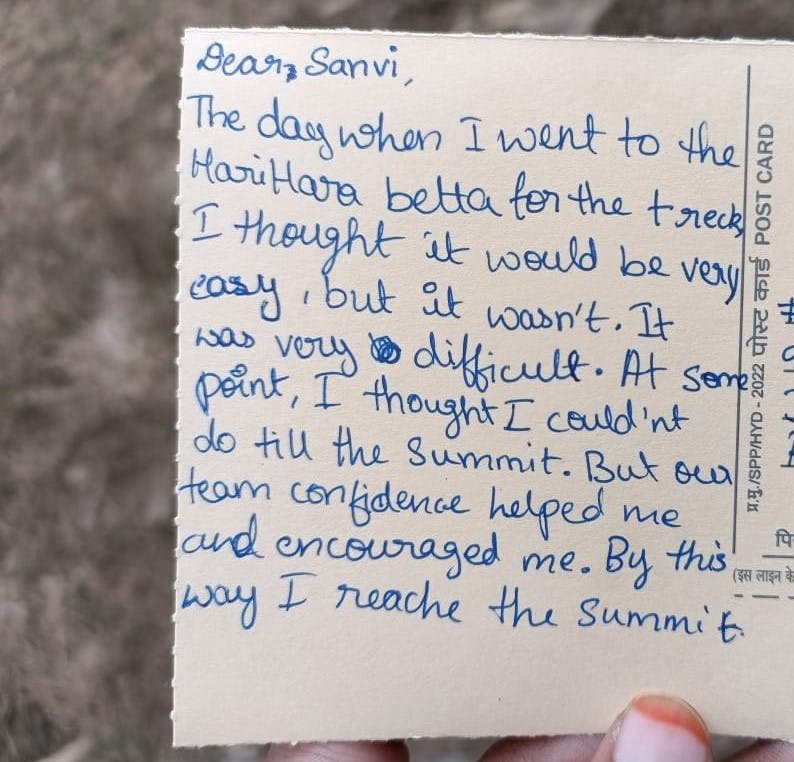 Dear, Sanvi,
The day when I went to the
HariHara betta for the treck,
I thought it would be very
easy, but it wasn't. It
was very difficult. At some
point, I thought I could'nt
do till the summit. But our
team confidence helped me
and encouraged me. By this
way I reache the summit.
प्र.मु./SPP/HYD - 2022 पोस्ट कार्ड POST CARD
(इस लाइन के